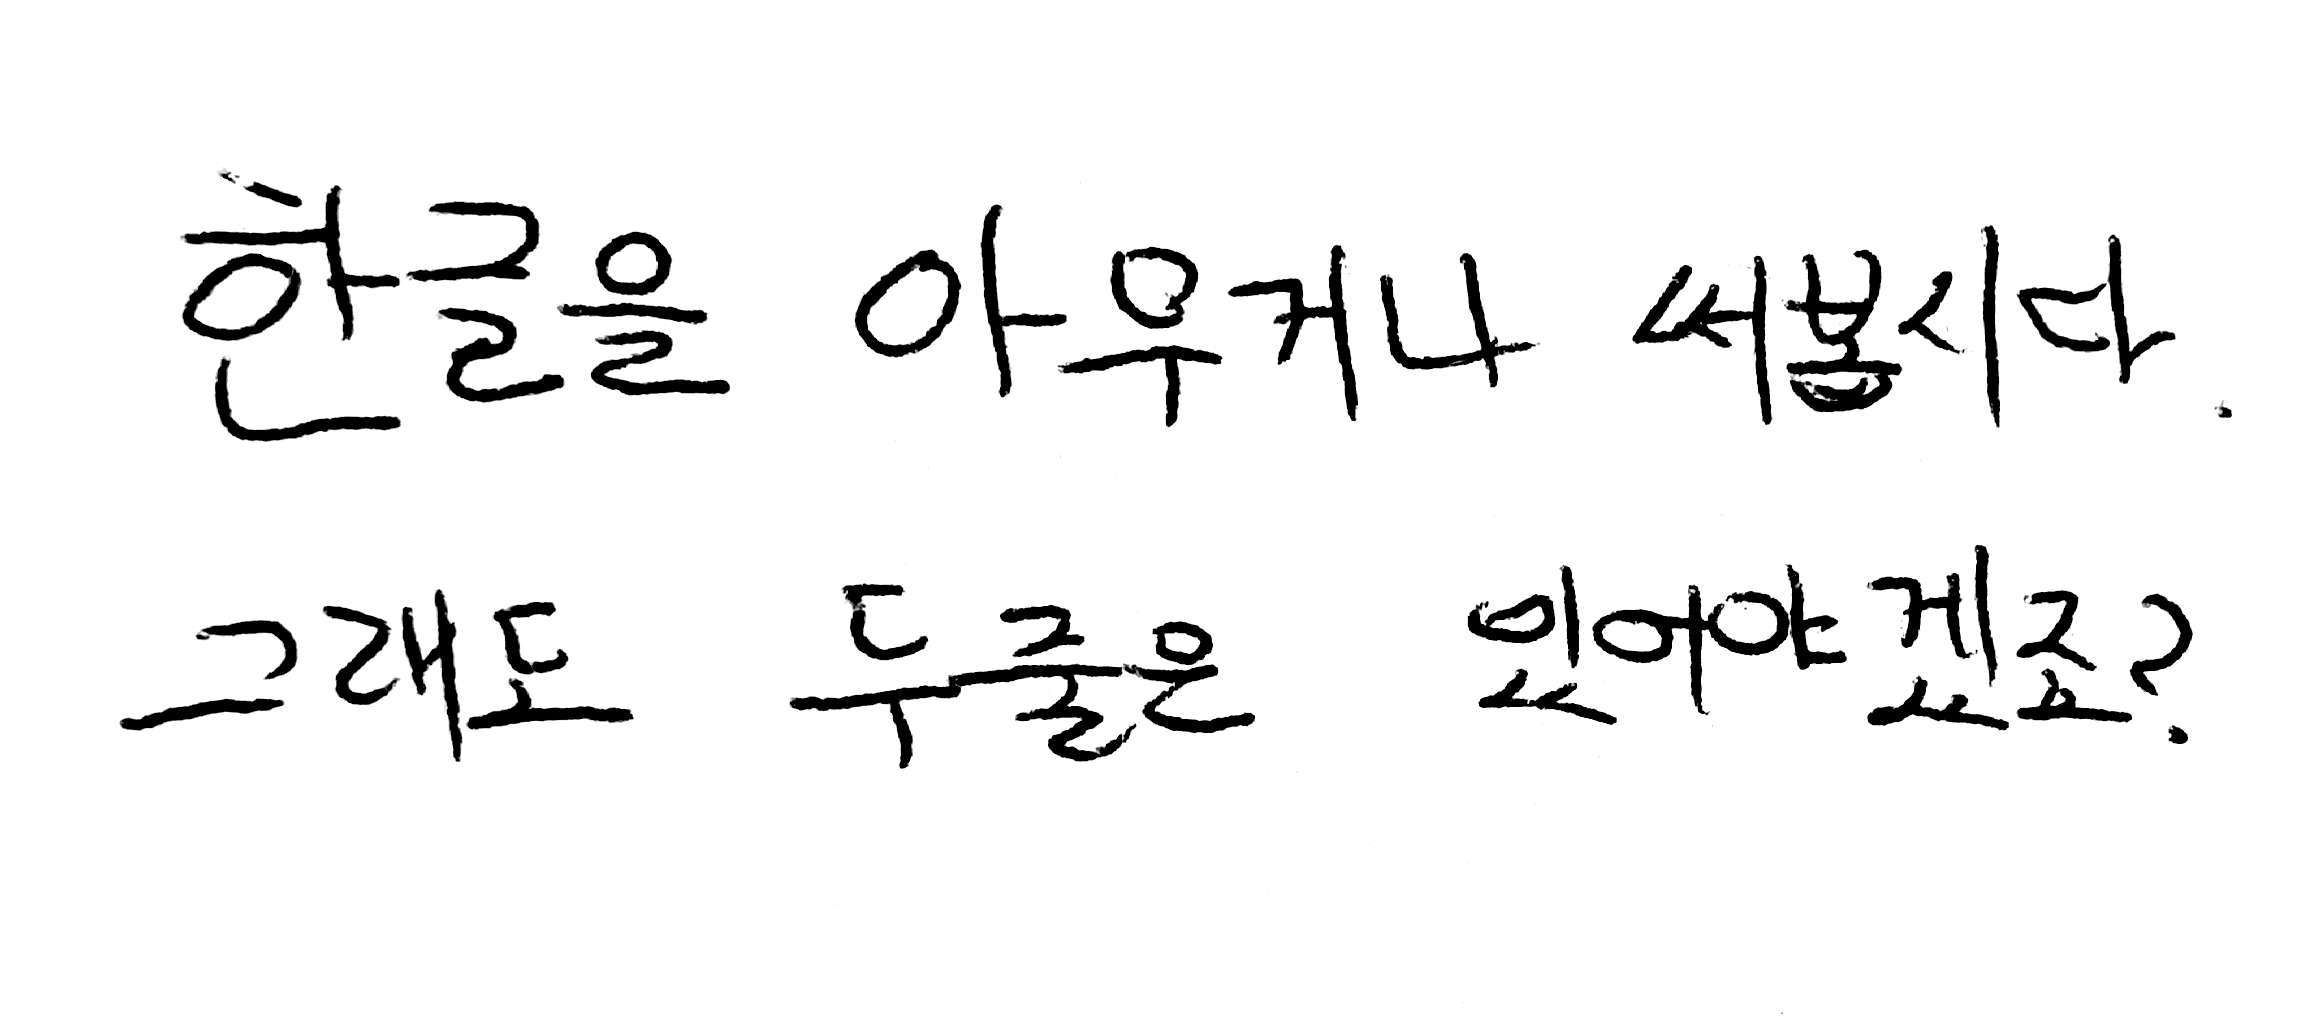 한글을 아우거나 써봅시다.
그래도 두줄은 있어야겠죠?